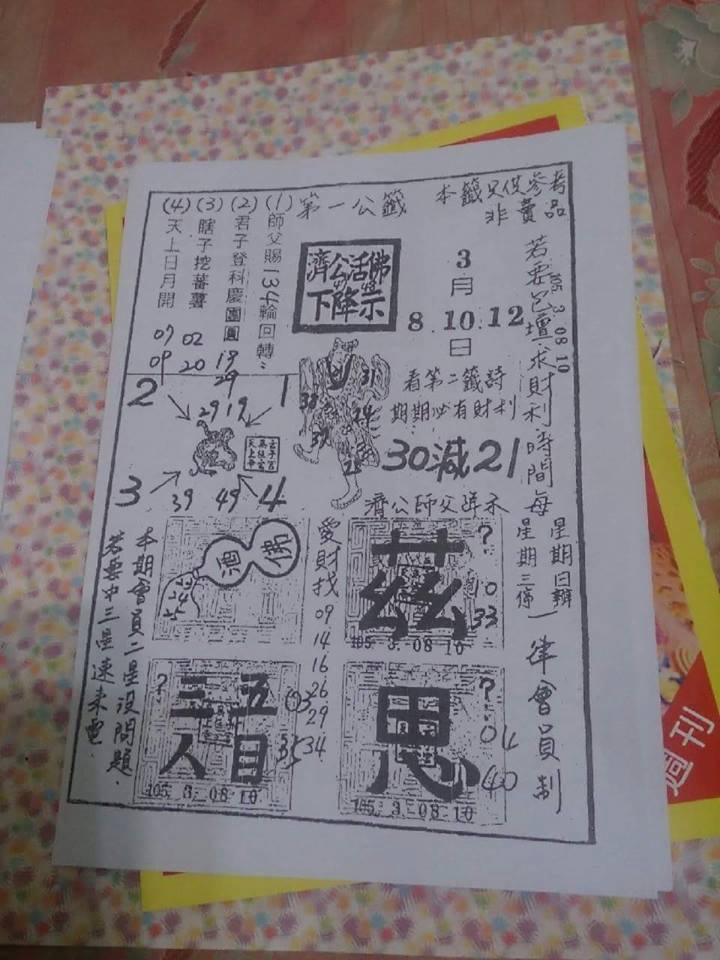 本籤只供參考
非賣品
第一公籤
(1)師父賜134輪回轉
(2)君子登科慶團圓
(3)瞎子挖蕃薯
(4)天上日月開
19
29
02
20
07
09
濟公活佛
下降示
3
月
8.10.12
日
105.3.08 10
若要包壇求財利時間每
星期日辦
星期三停
一律會員制
看第二籤詩
期期必有財利
30減21
濟公師父詳示
31
38
24
39
2
1
29 19
3
4
39 49
酒
佛
愛財找
09
14
16
26
29
34
茲
?
10
33
105.3.08 10
本期會員二星沒問題
若要中三星速來電
?
三五
人目
03
35
105.3.08 10
思
?
04
40
105.3.08 10
週刊